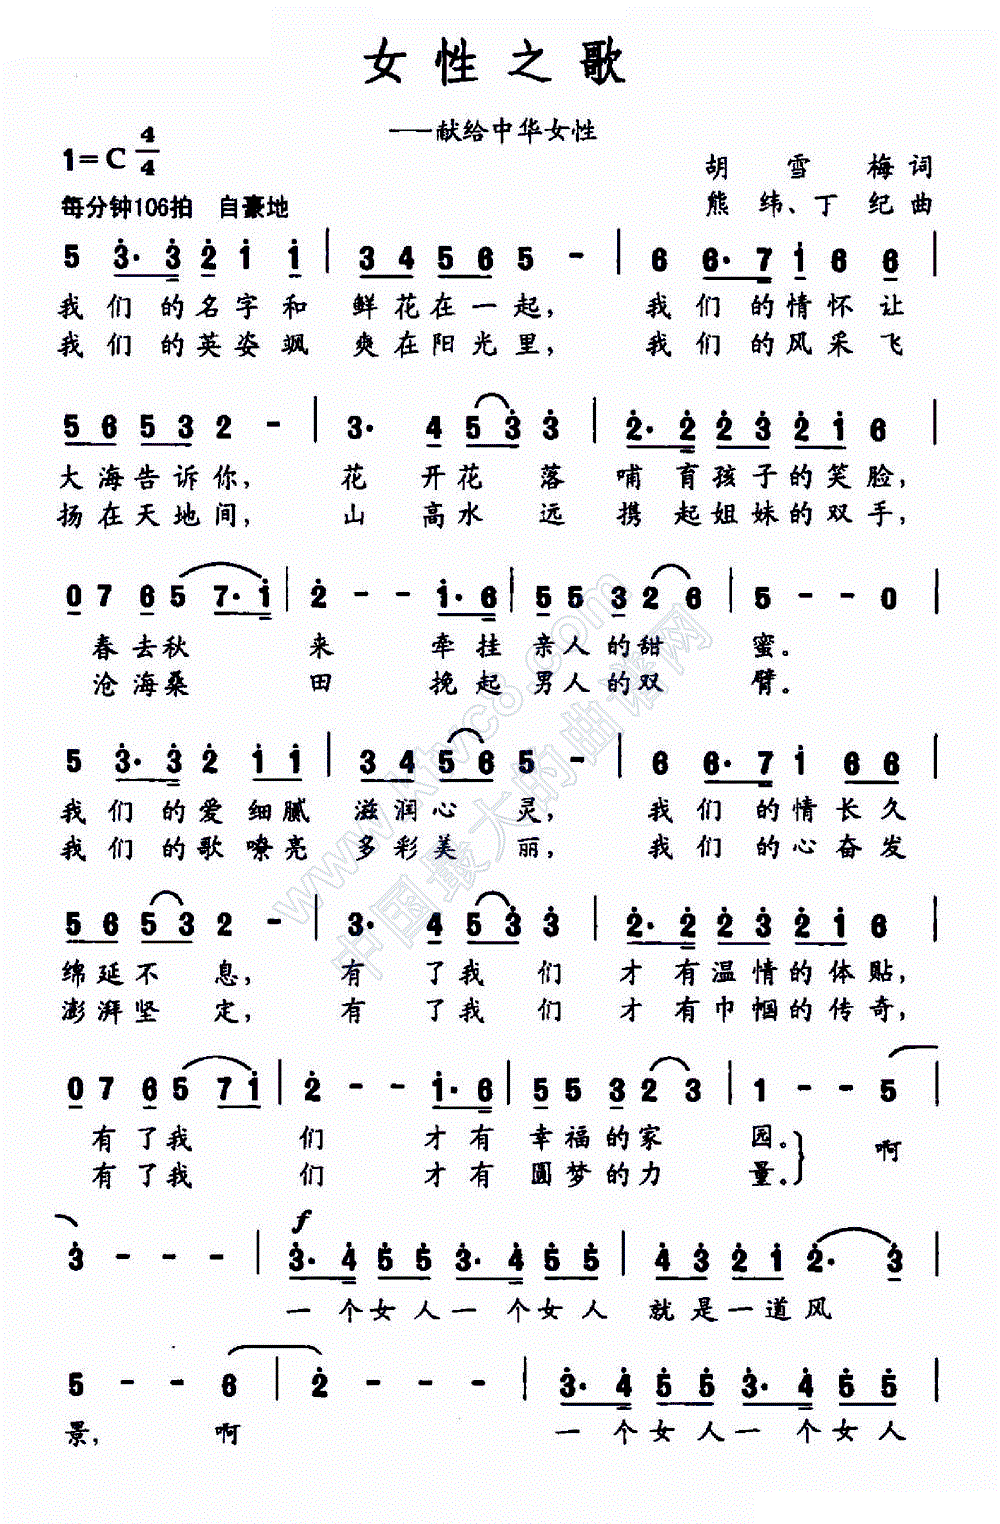 女性之歌
——献给中华女性
1=C 4/4
胡雪梅词
每分钟106拍 自豪地
熊纬、丁纪曲
5 3· 3 2 1 1 | 3 4 5 6 5 - | 6 6· 7 1 6 6 |
我们的名字和 鲜花在一起， 我们的情怀让
我们的英姿飒 爽在阳光里， 我们的风采飞
5 6 5 3 2 - | 3· 4 5 3 3 | 2· 2 2 3 2 1 6 |
大海告诉你， 花开花落 哺育孩子的笑脸，
扬在天地间， 山高水远 携起姐妹的双手，
0 7 6 5 7· 1 | 2 - - 1· 6 | 5 5 3 2 6 | 5 - - 0 |
春去秋来 牵挂亲人的甜蜜。
沧海桑田 挽起男人的双臂。
5 3· 3 2 1 1 | 3 4 5 6 5 - | 6 6· 7 1 6 6 |
我们的爱细腻 滋润心灵， 我们的情长久
我们的歌嘹亮 多彩美丽， 我们的心奋发
5 6 5 3 2 - | 3· 4 5 3 3 | 2· 2 2 3 2 1 6 |
绵延不息， 有了我们 才有温情的体贴，
澎湃坚定， 有了我们 才有巾帼的传奇，
0 7 6 5 7 1 | 2 - - 1· 6 | 5 5 3 2 3 | 1 - - 5 |
有了我们 才有幸福的家园。 啊
有了我们 才有圆梦的力量。
f
3 - - - | 3· 4 5 5 3· 4 5 5 | 4 3 2 1 2· 3 |
一个女人一个女人 就是一道风
5 - - 6 | 2 - - - | 3· 4 5 5 3· 4 5 5 |
景， 啊 一个女人一个女人
www.ktvc8.com
中国最大的曲谱网